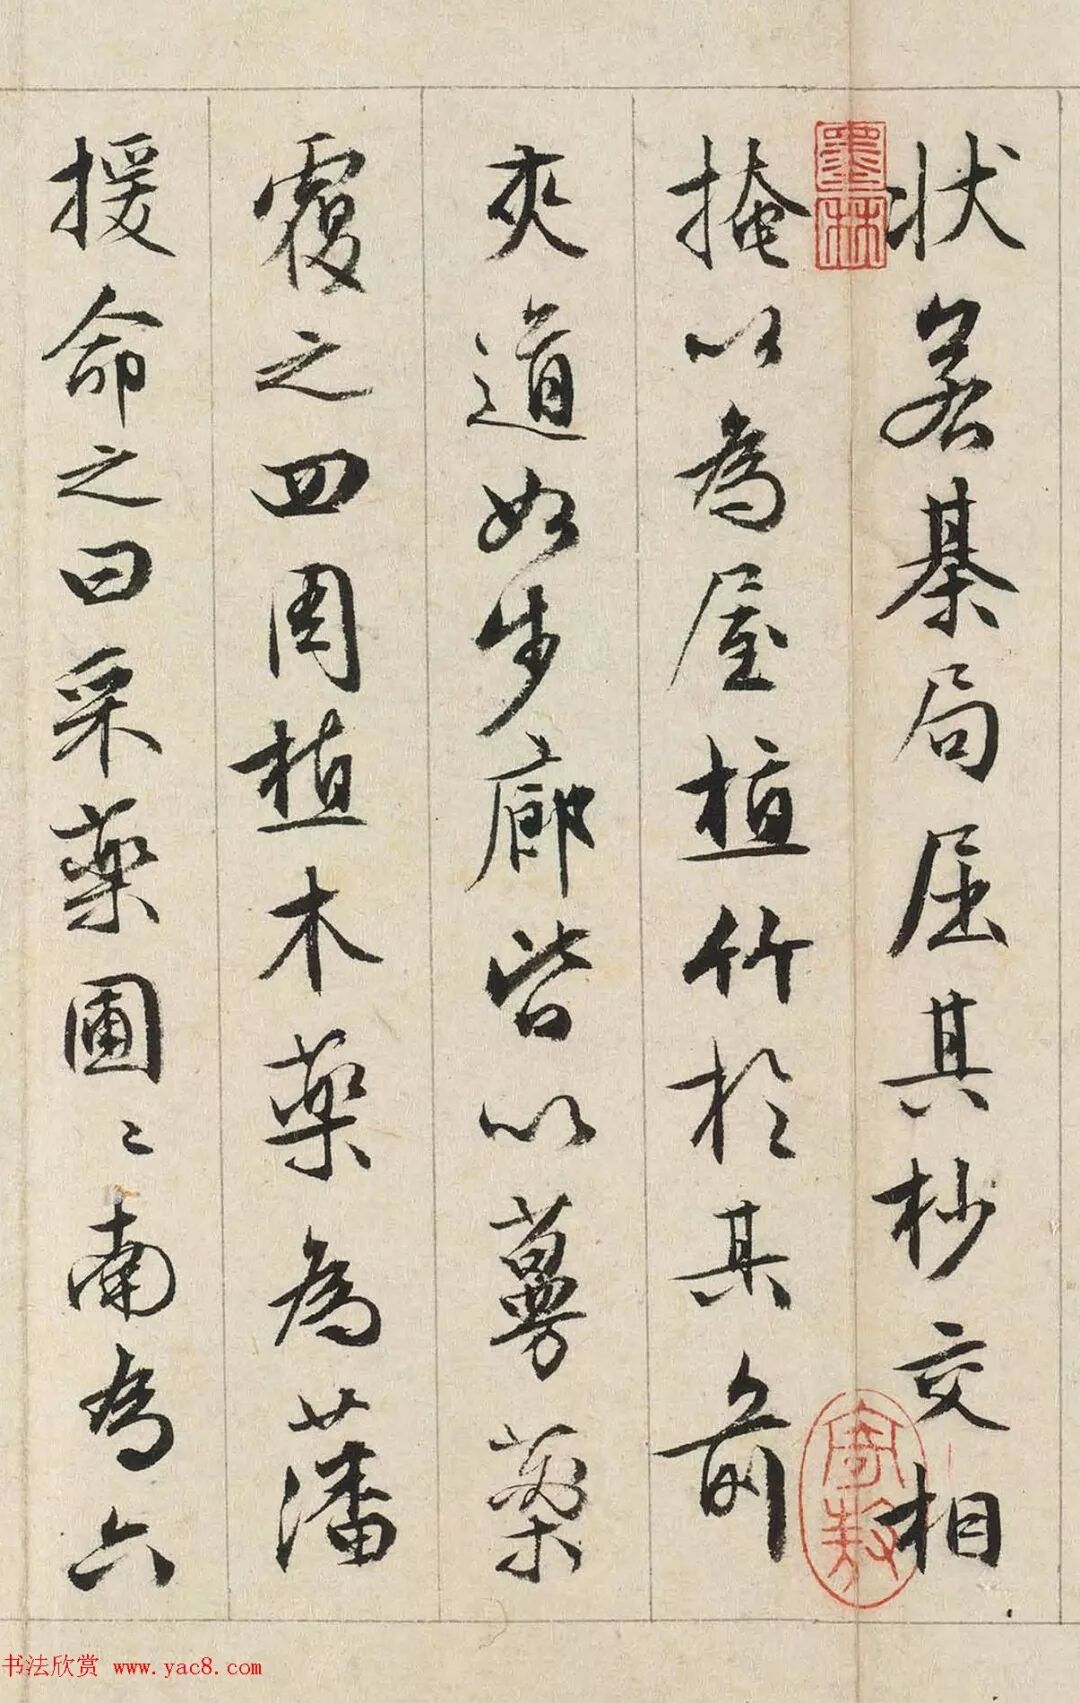 状若棊局屈其杪交相
掩以為屋植竹於其前
夾道如步廊皆以蔓藥
覆之四周植木藥為藩
援命之曰采藥圃〻南為六
墨林
書法欣賞 www.yac8.com